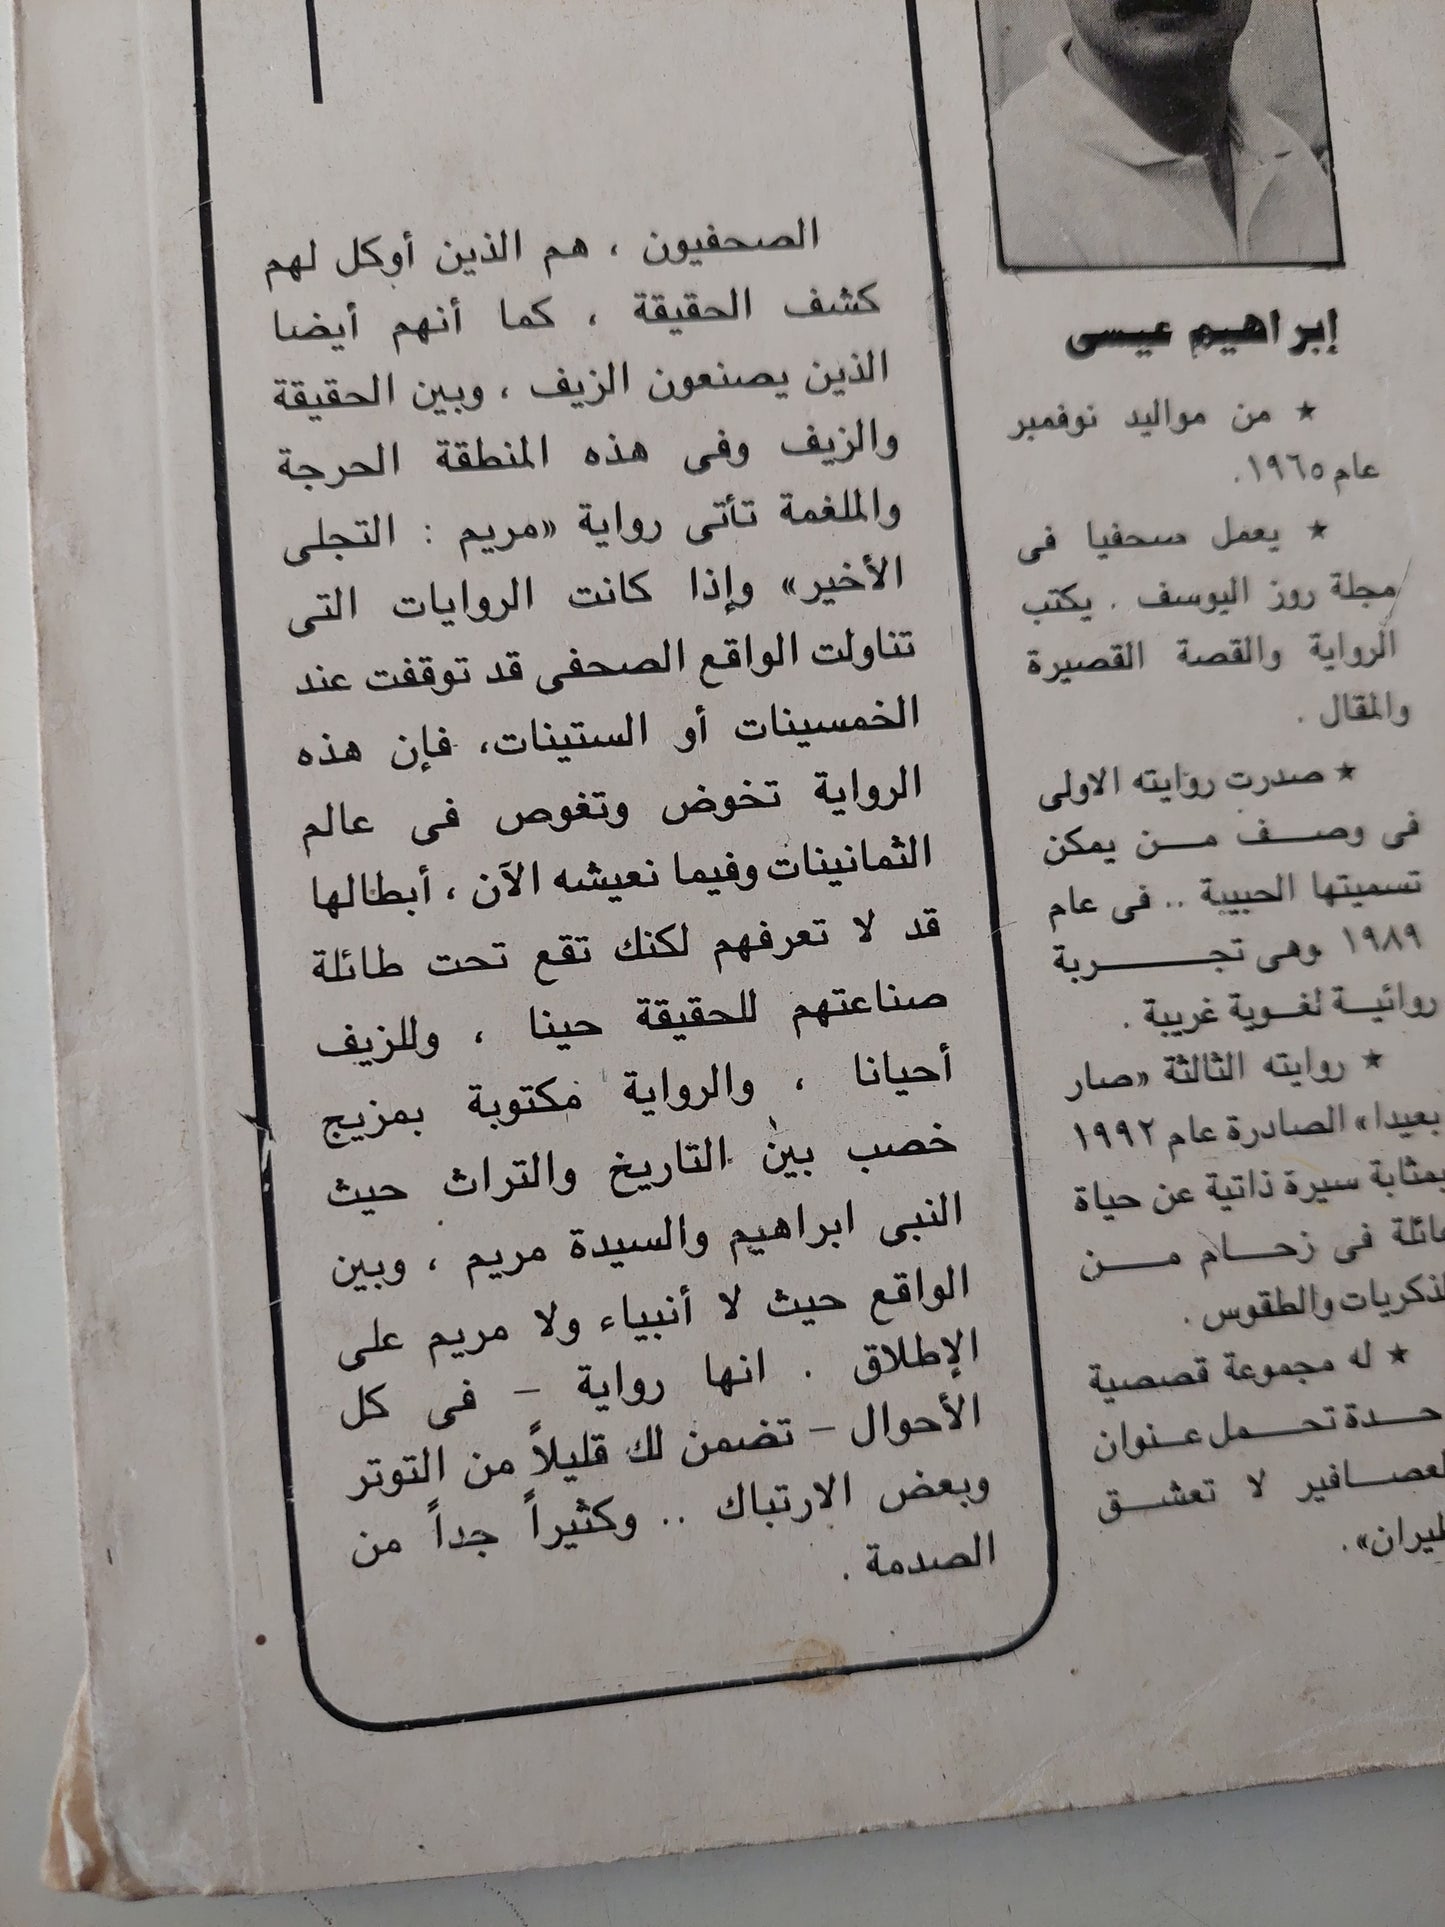 إبراهيم عيسى
★ من مواليد نوفمبر
عام ١٩٦٥.
★ يعمل صحفيا فى
مجلة روز اليوسف . يكتب
الرواية والقصة القصيرة
والمقال .
★ صدرت روايته الاولى
فى وصف من يمكن
تسميتها الحبيبة .. فى عام
١٩٨٩ وهى تجربة
روائية لغوية غريبة .
★ روايته الثالثة «صار
بعيدا» الصادرة عام ١٩٩٢
بمثابة سيرة ذاتية عن حياة
عائلة فى زحام من
لذكريات والطقوس .
★ له مجموعة قصصية
حدة تحمل عنوان
لعصافير لا تعشق
ليران».
الصحفيون ، هم الذين أوكل لهم
كشف الحقيقة ، كما أنهم أيضا
الذين يصنعون الزيف ، وبين الحقيقة
والزيف وفى هذه المنطقة الحرجة
والملغمة تأتى رواية «مريم : التجلى
الأخير» وإذا كانت الروايات التى
تناولت الواقع الصحفى قد توقفت عند
الخمسينات أو الستينات، فإن هذه
الرواية تخوض وتغوص فى عالم
الثمانينات وفيما نعيشه الآن ، أبطالها
قد لا تعرفهم لكنك تقع تحت طائلة
صناعتهم للحقيقة حينا ، وللزيف
أحيانا ، والرواية مكتوبة بمزيج
خصب بين التاريخ والتراث حيث
النبى ابراهيم والسيدة مريم ، وبين
الواقع حيث لا أنبياء ولا مريم على
الإطلاق . انها رواية – فى كل
الأحوال – تضمن لك قليلاً من التوتر
وبعض الارتباك .. وكثيراً جداً من
الصدمة .